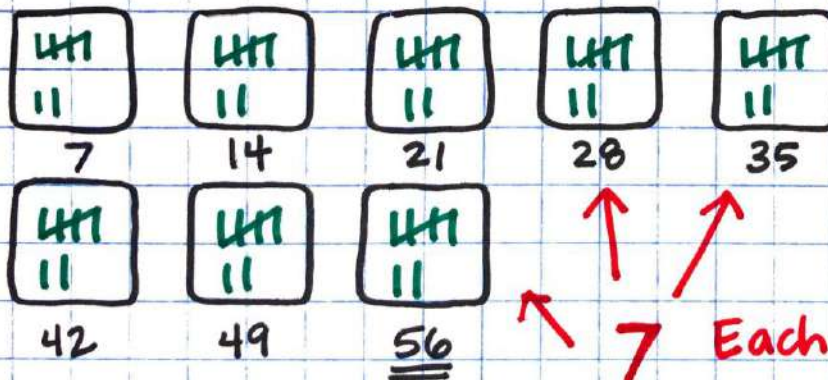 7 14 21 28 35
42 49 56
7 Each